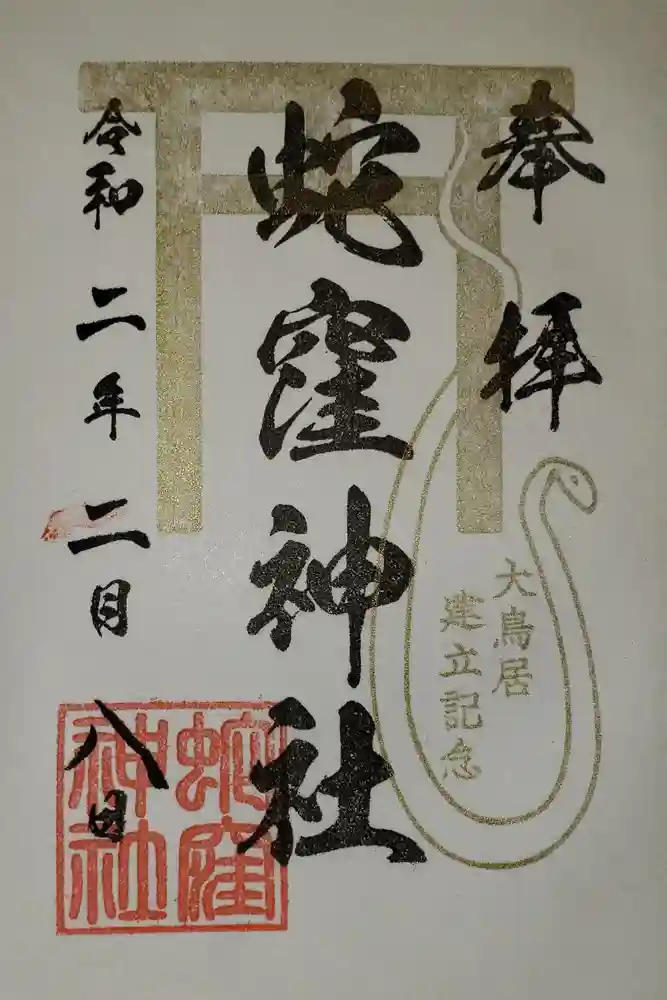 奉拝
大鳥居
建立記念
蛇窪神社
蛇窪
神社
令和二年二月八日